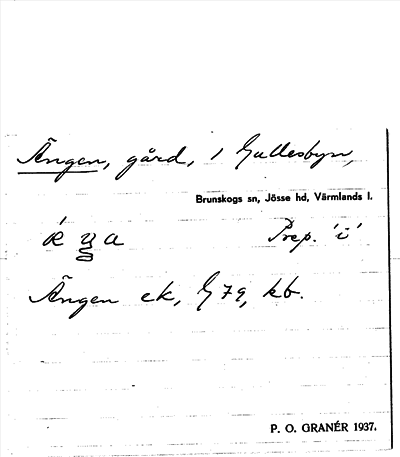 Ängen, gård, i Gullesbyn,
Brunskogs sn, Jösse hd, Värmlands l.
Prep. 'i'
Ängen ek, G79, kb.
P. O. GRANÉR 1937.